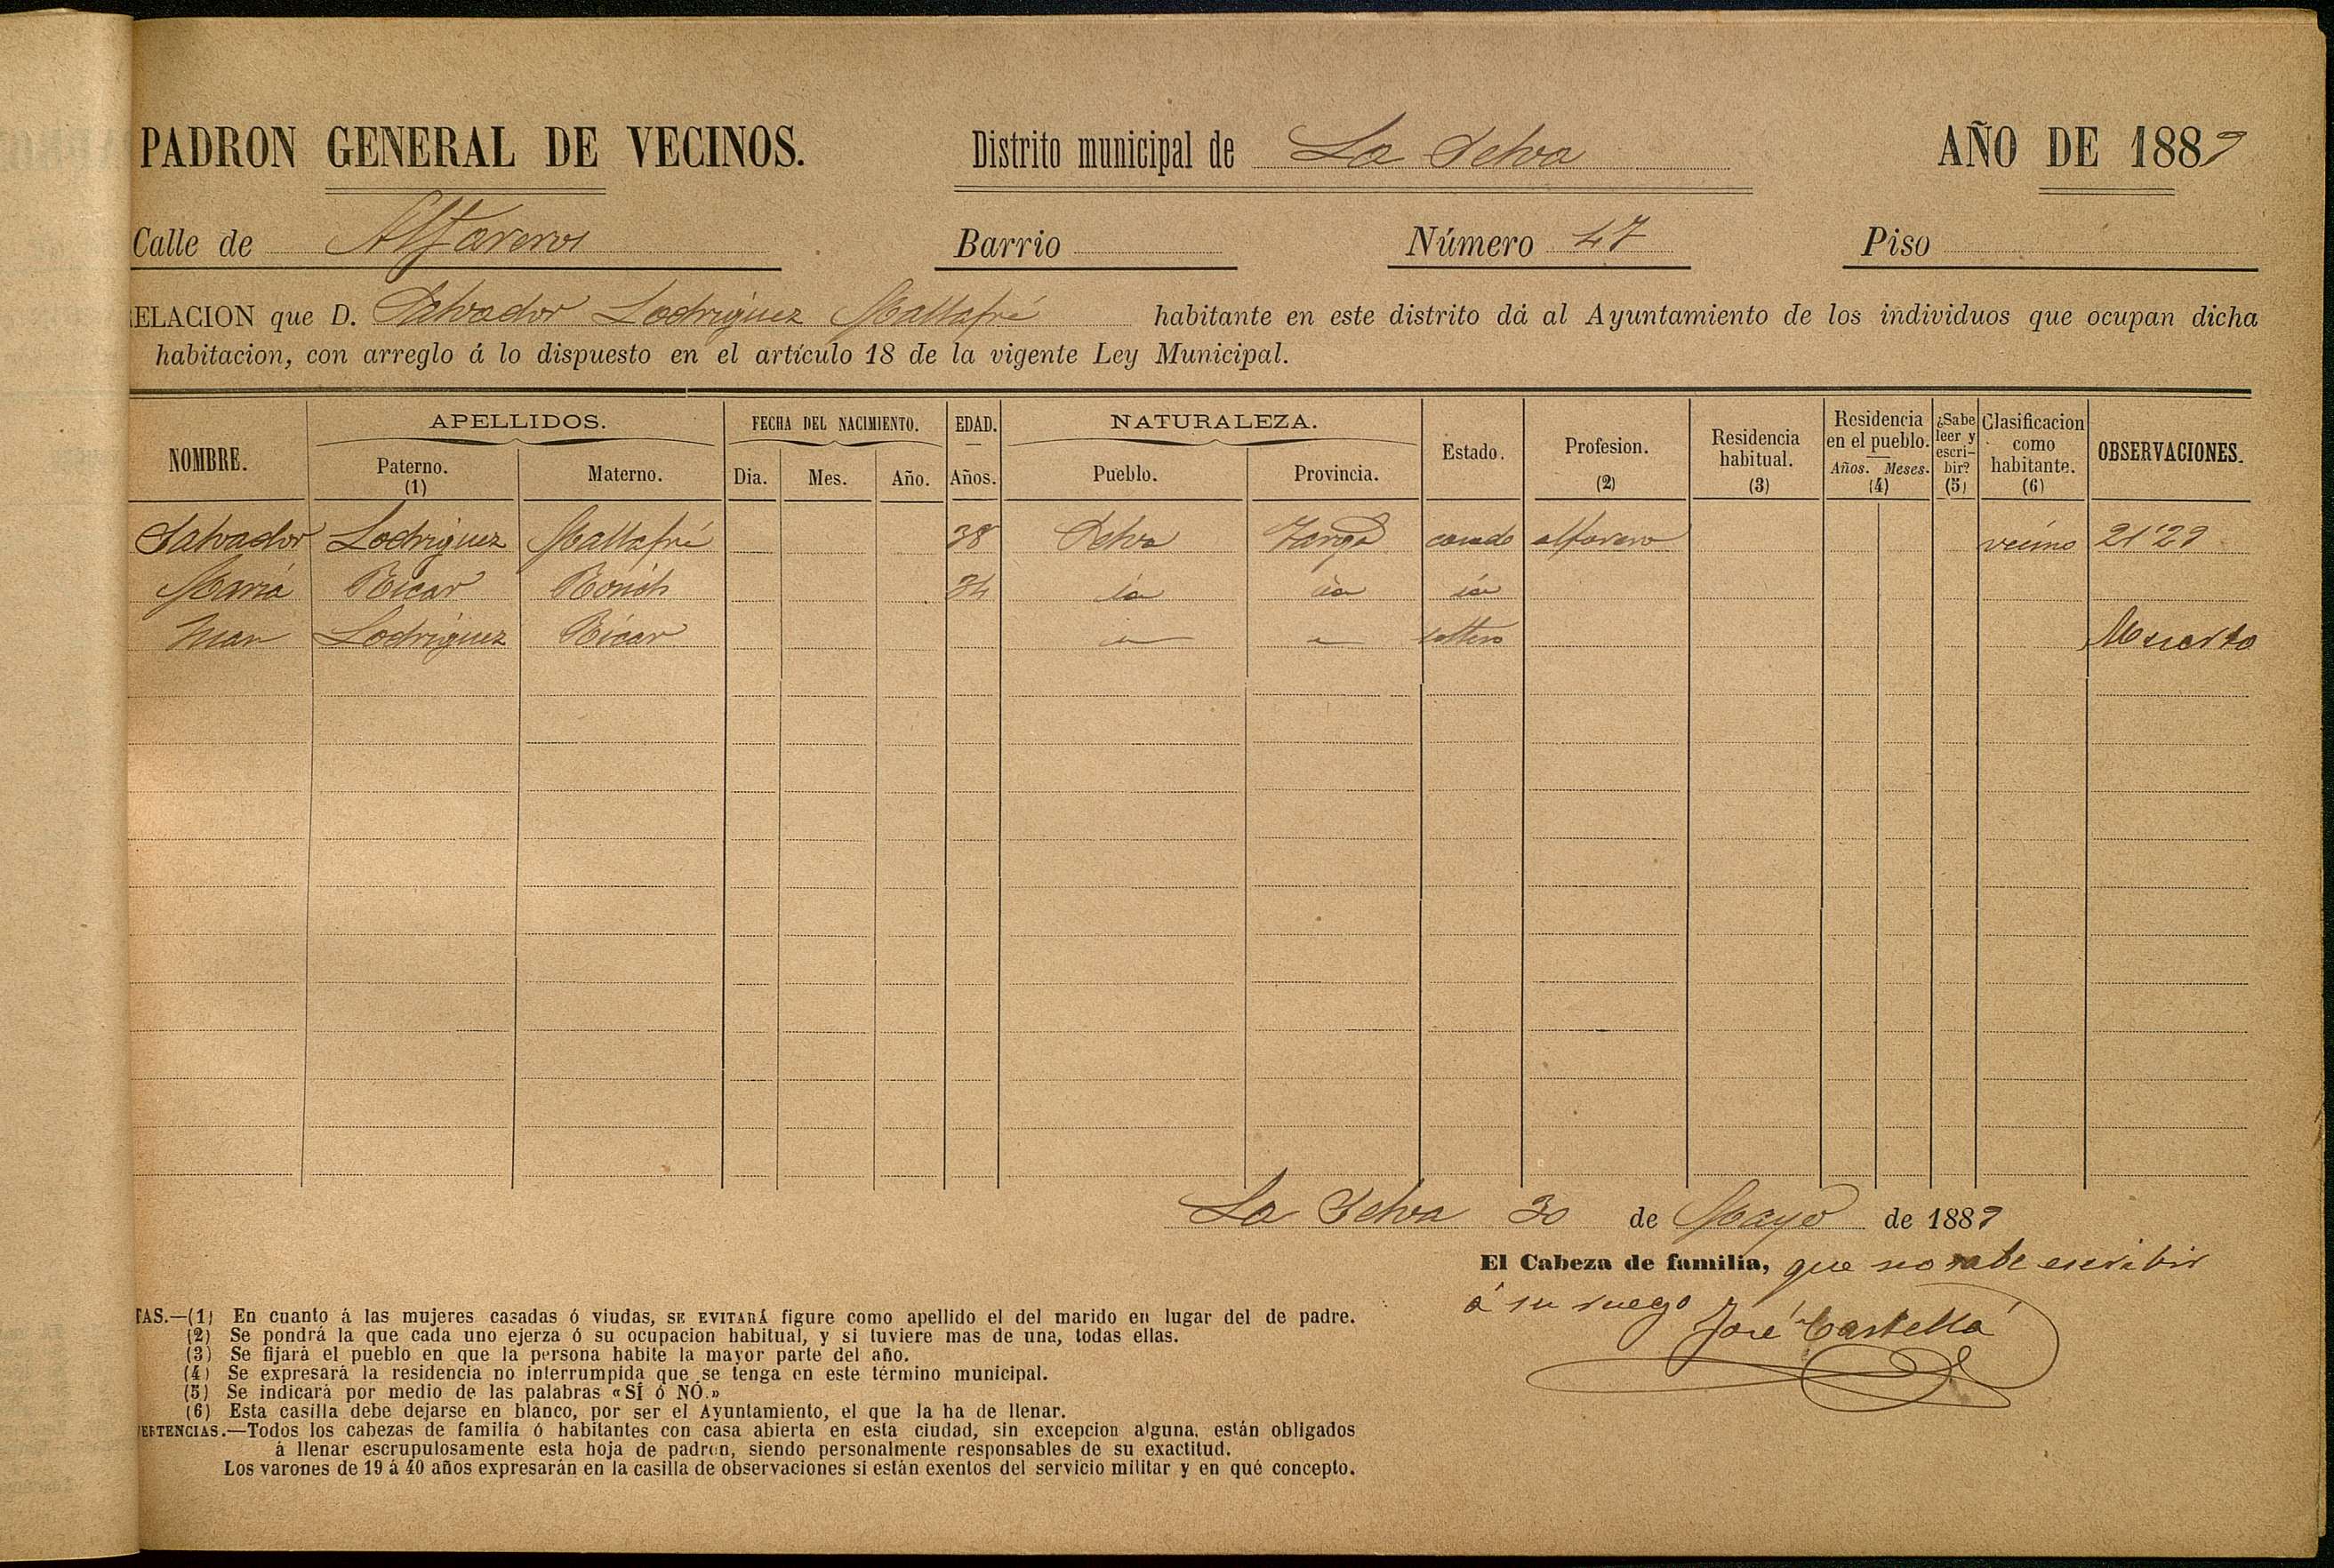 PADRON GENERAL DE VECINOS. Distrito municipal de La Selva AÑO DE 1889
Calle de Alfareros Barrio Número 47 Piso
ELACION que D. Salvador Lodriguez Mallafré habitante en este distrito dá al Ayuntamiento de los individuos que ocupan dicha
habitacion, con arreglo á lo dispuesto en el artículo 18 de la vigente Ley Municipal.
NOMBRE. APELLIDOS. Paterno. (1) Materno. FECHA DEL NACIMIENTO. Dia. Mes. Año. EDAD. Años. NATURALEZA. Pueblo. Provincia. Estado. Profesion. (2) Residencia habitual. (3) Residencia en el pueblo. Años. Meses. (4) ¿Sabe leer y escribir? (5) Clasificacion como habitante. (6) OBSERVACIONES.
Salvador Lodriguez Mallafré 38 Selva Tarrgª casado alfarero vecino 21'29
Maria Ricar 34 id id id
Juan Lodriguez Ricar soltero Muerto
La Selva 30 de Mayo de 1889
El Cabeza de familia, que no sabe escribir
á su ruego José Castellá
TAS.—(1) En cuanto á las mujeres casadas ó viudas, SE EVITARÁ figure como apellido el del marido en lugar del de padre.
(2) Se pondrá la que cada uno ejerza ó su ocupacion habitual, y si tuviere mas de una, todas ellas.
(3) Se fijará el pueblo en que la persona habite la mayor parte del año.
(4) Se expresará la residencia no interrumpida que se tenga en este término municipal.
(5) Se indicará por medio de las palabras «SÍ ó NÓ.»
(6) Esta casilla debe dejarse en blanco, por ser el Ayuntamiento, el que la ha de llenar.
ERTENCIAS.—Todos los cabezas de familia ó habitantes con casa abierta en esta ciudad, sin excepcion alguna, están obligados
á llenar escrupulosamente esta hoja de padron, siendo personalmente responsables de su exactitud.
Los varones de 19 á 40 años expresarán en la casilla de observaciones si están exentos del servicio militar y en qué concepto.